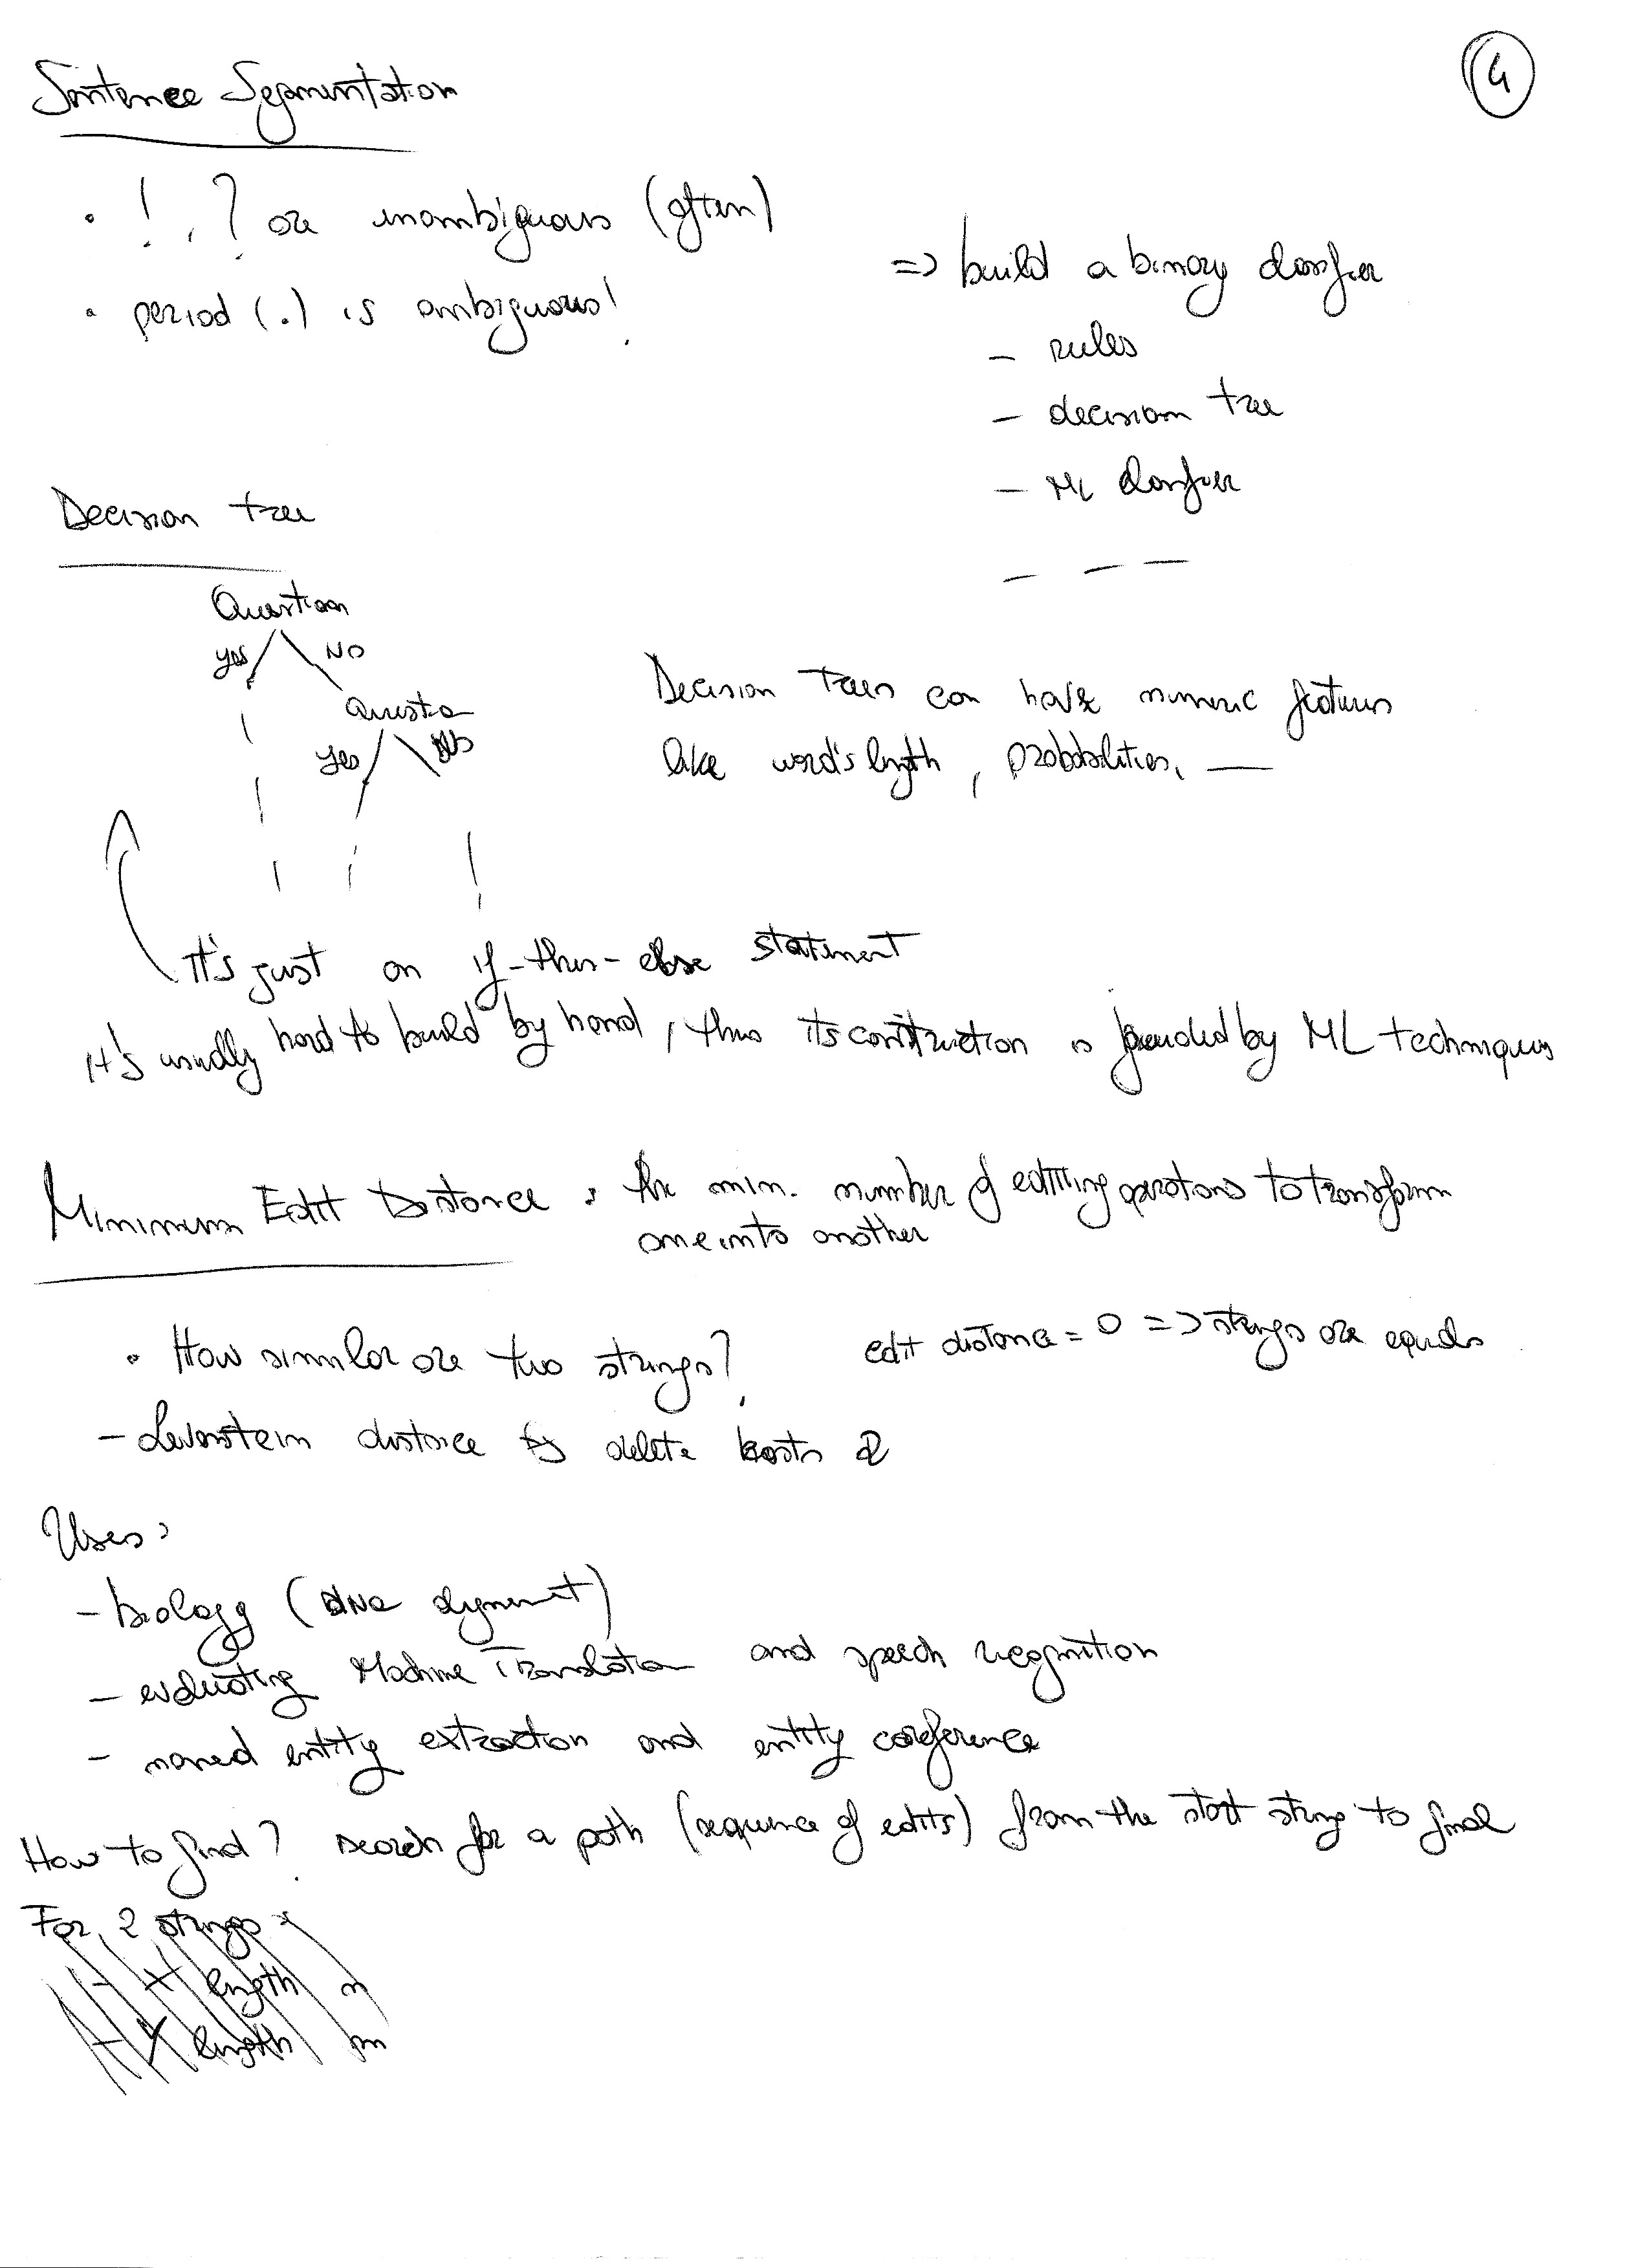 4
Sentence Segmentation
• !, ? are unambiguous (often)
• period (.) is ambiguous!
=> build a binary classifier
- rules
- decision tree
- ML classifier
- - -
Decision tree
Question
yes NO
Questio
yes No
Decision Trees can have numeric features
like word's length, probabilities, —
It's just an if-then-else statement
It's usually hard to build by hand, thus its construction is by ML techniques
Minimum Edit Distance: the min. number of editing operations to transform
one into another
• How similar are two strings?
edit distance = 0 => strings are equals
- Levenstein distance delete costs 2
Uses:
- biology (DNA alignment)
- evaluating Machine Translation and speech recognition
- named entity extraction and entity coreference
How to find? search for a path (sequence of edits) from the start string to final
For 2 strings:
- X length n
- Y length m